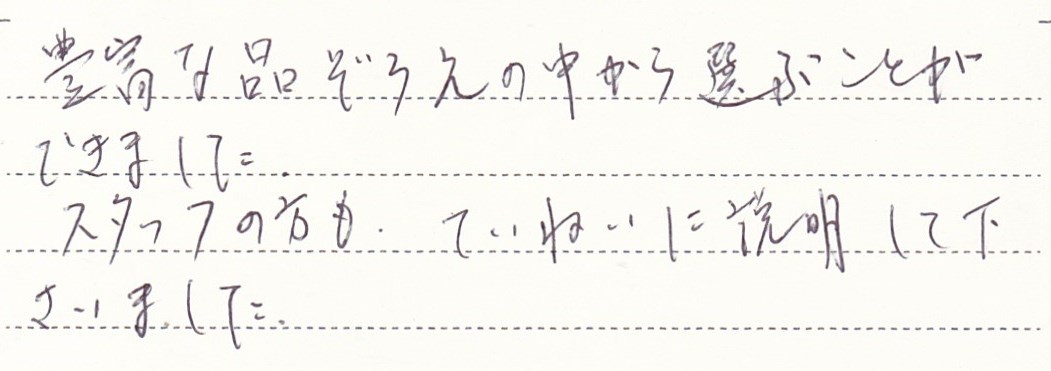 豊富な品ぞろえの中から選ぶことが
できました.
スタッフの方も. ていねいに説明して下
さいました.